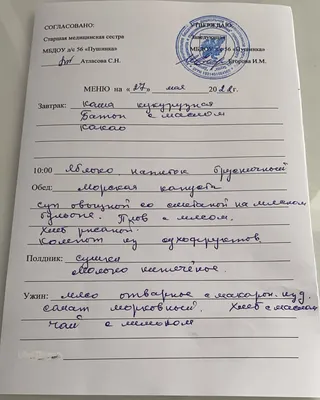 СОГЛАСОВАНО:
УТВЕРЖДАЮ:
Старшая медицинская сестра
Заведующая
МБДОУ д/с 56 «Пушинка»
МБДОУ д/с 56 «Пушинка»
Атласова С.Н.
Егорова И.М.
МЕНЮ на «27» мая 2022г.
Завтрак: каша кукурузная
Батон с маслом
какао
10:00 Яблоко, напиток брусничный
Обед: морская капуста
суп овощной со сметаной на мясном
бульоне. Плов с мясом.
Хлеб ржаной.
Компот из сухофруктов.
Полдник: сушка
молоко кипячёное.
Ужин: мясо отварное с макарон. изд.
салат морковный. Хлеб с маслом
чай с молоком